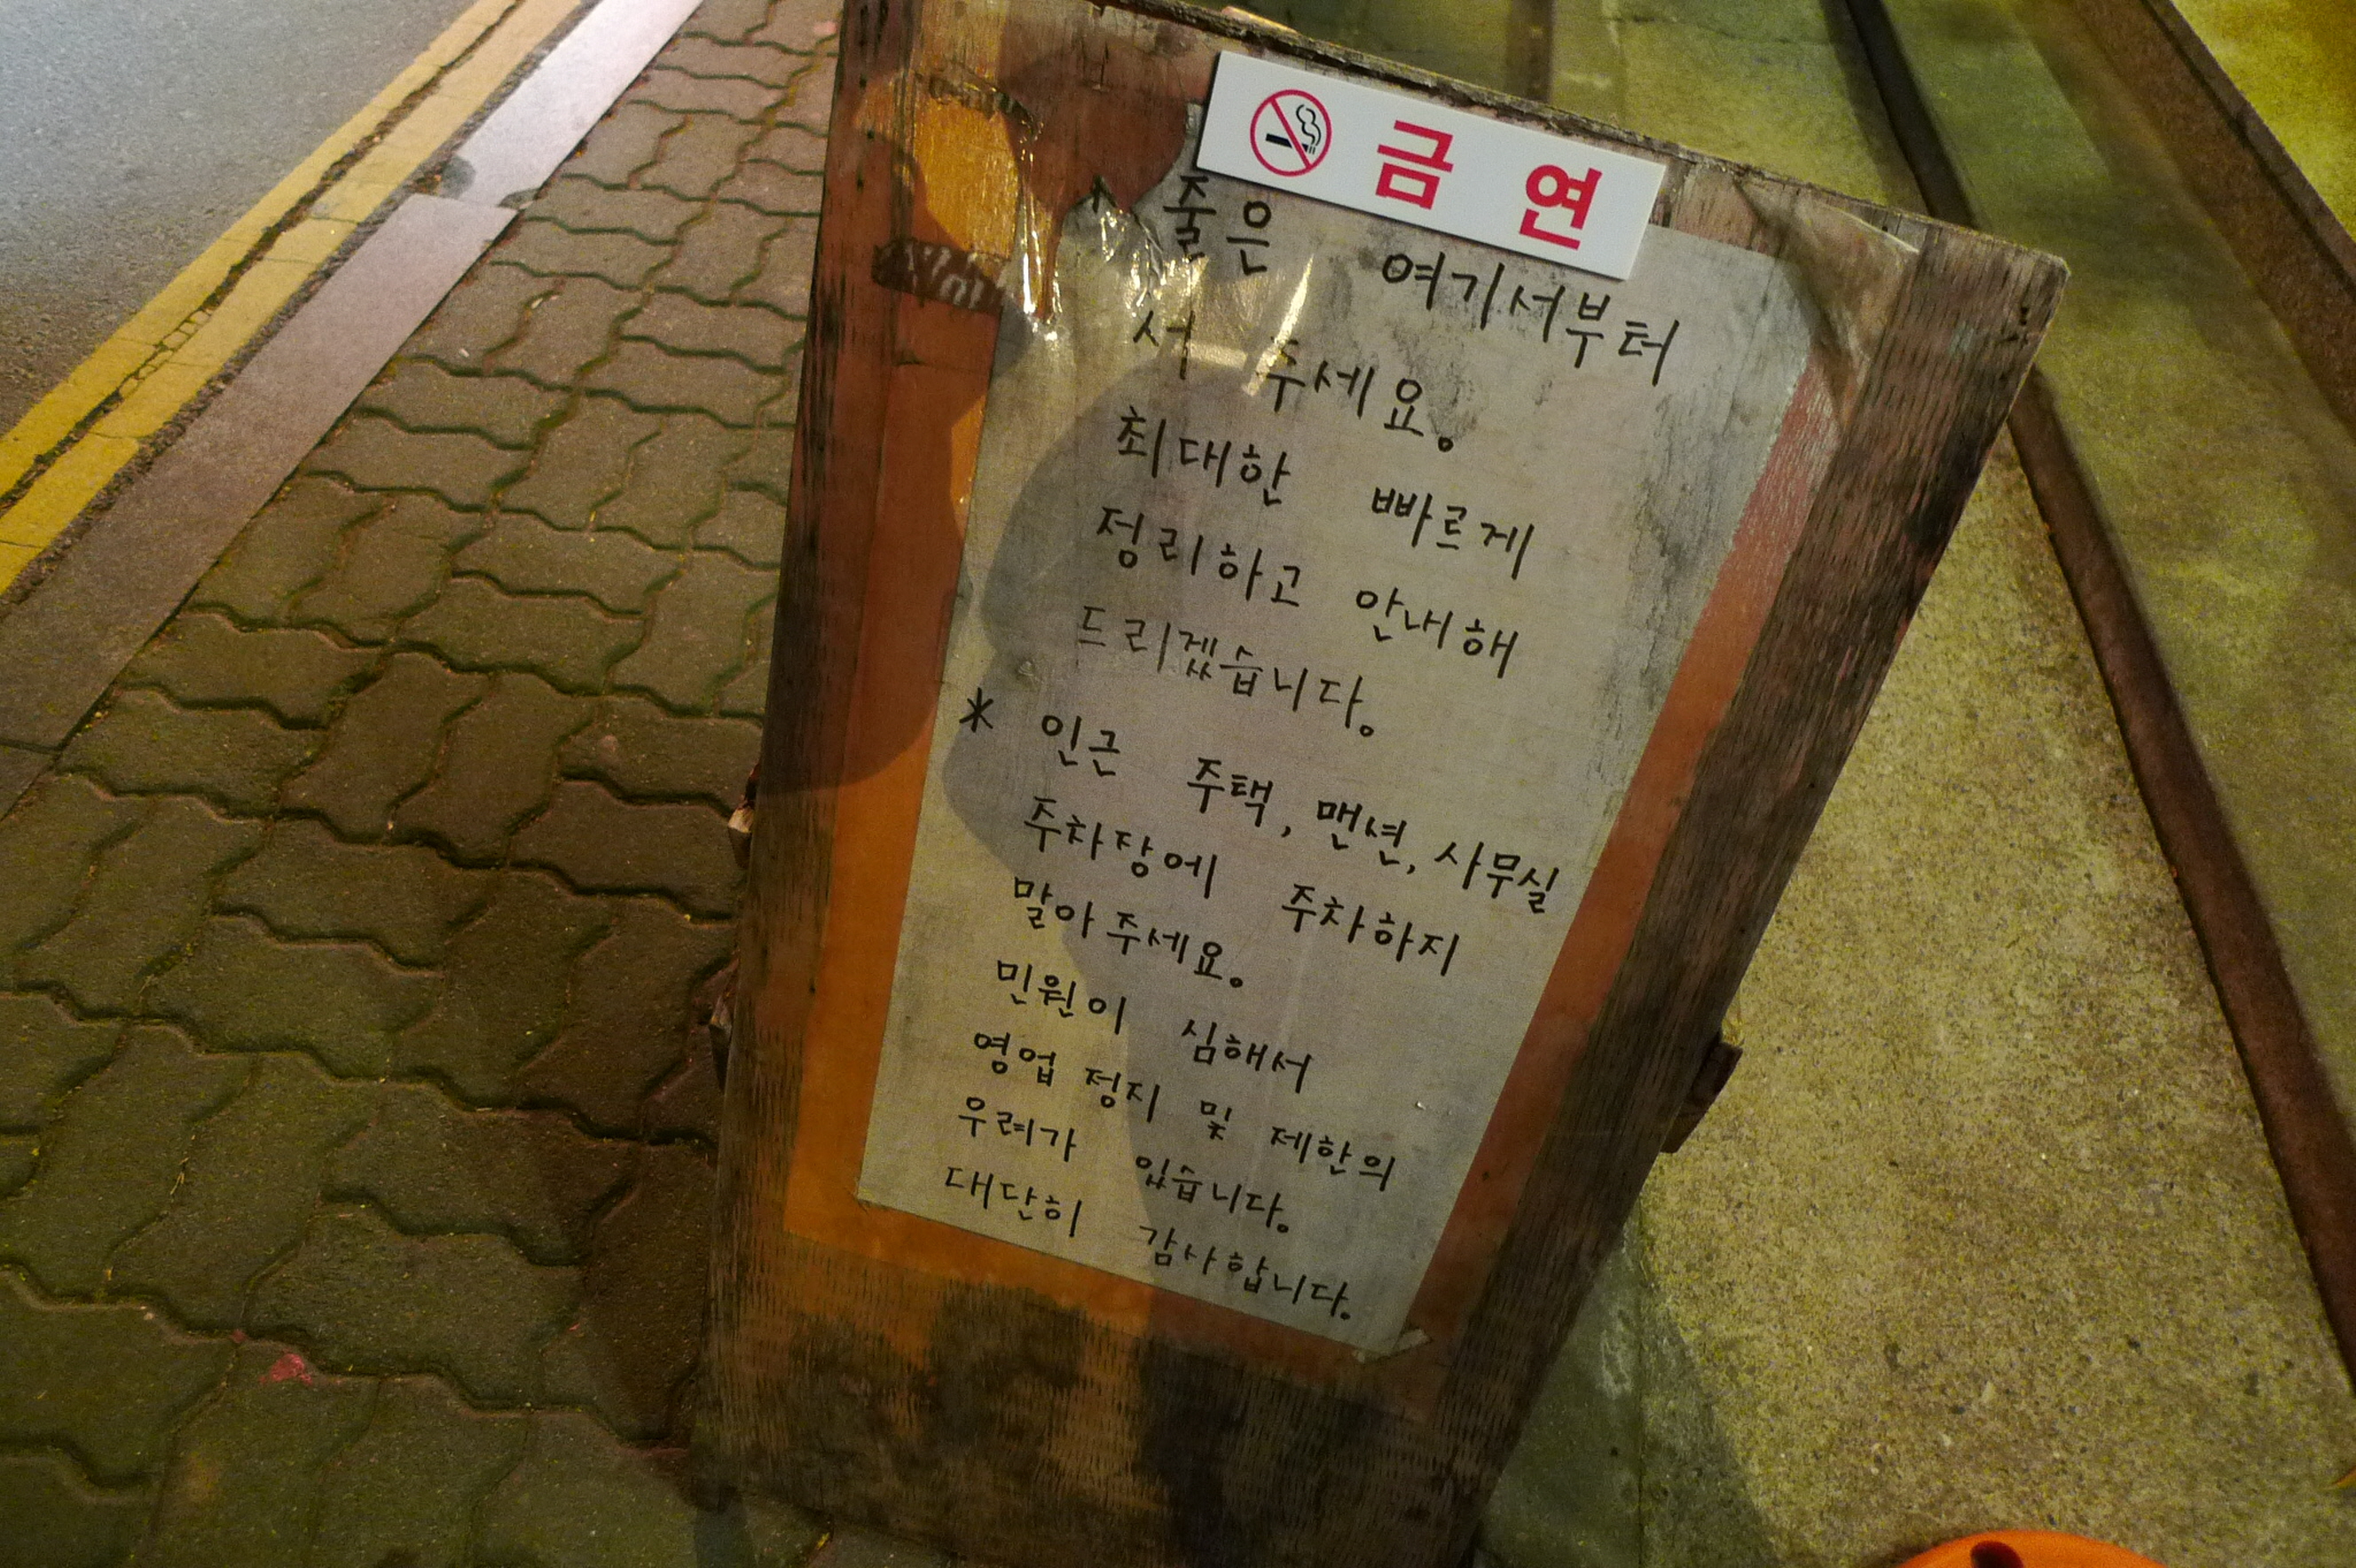 금연
* 줄은 여기서부터
서 주세요。
최대한 빠르게
정리하고 안내해
드리겠습니다。
* 인근 주택, 맨션, 사무실
주차장에 주차하지
말아 주세요。
민원이 심해서
영업 정지 및 제한의
우려가 있습니다。
대단히 감사합니다。